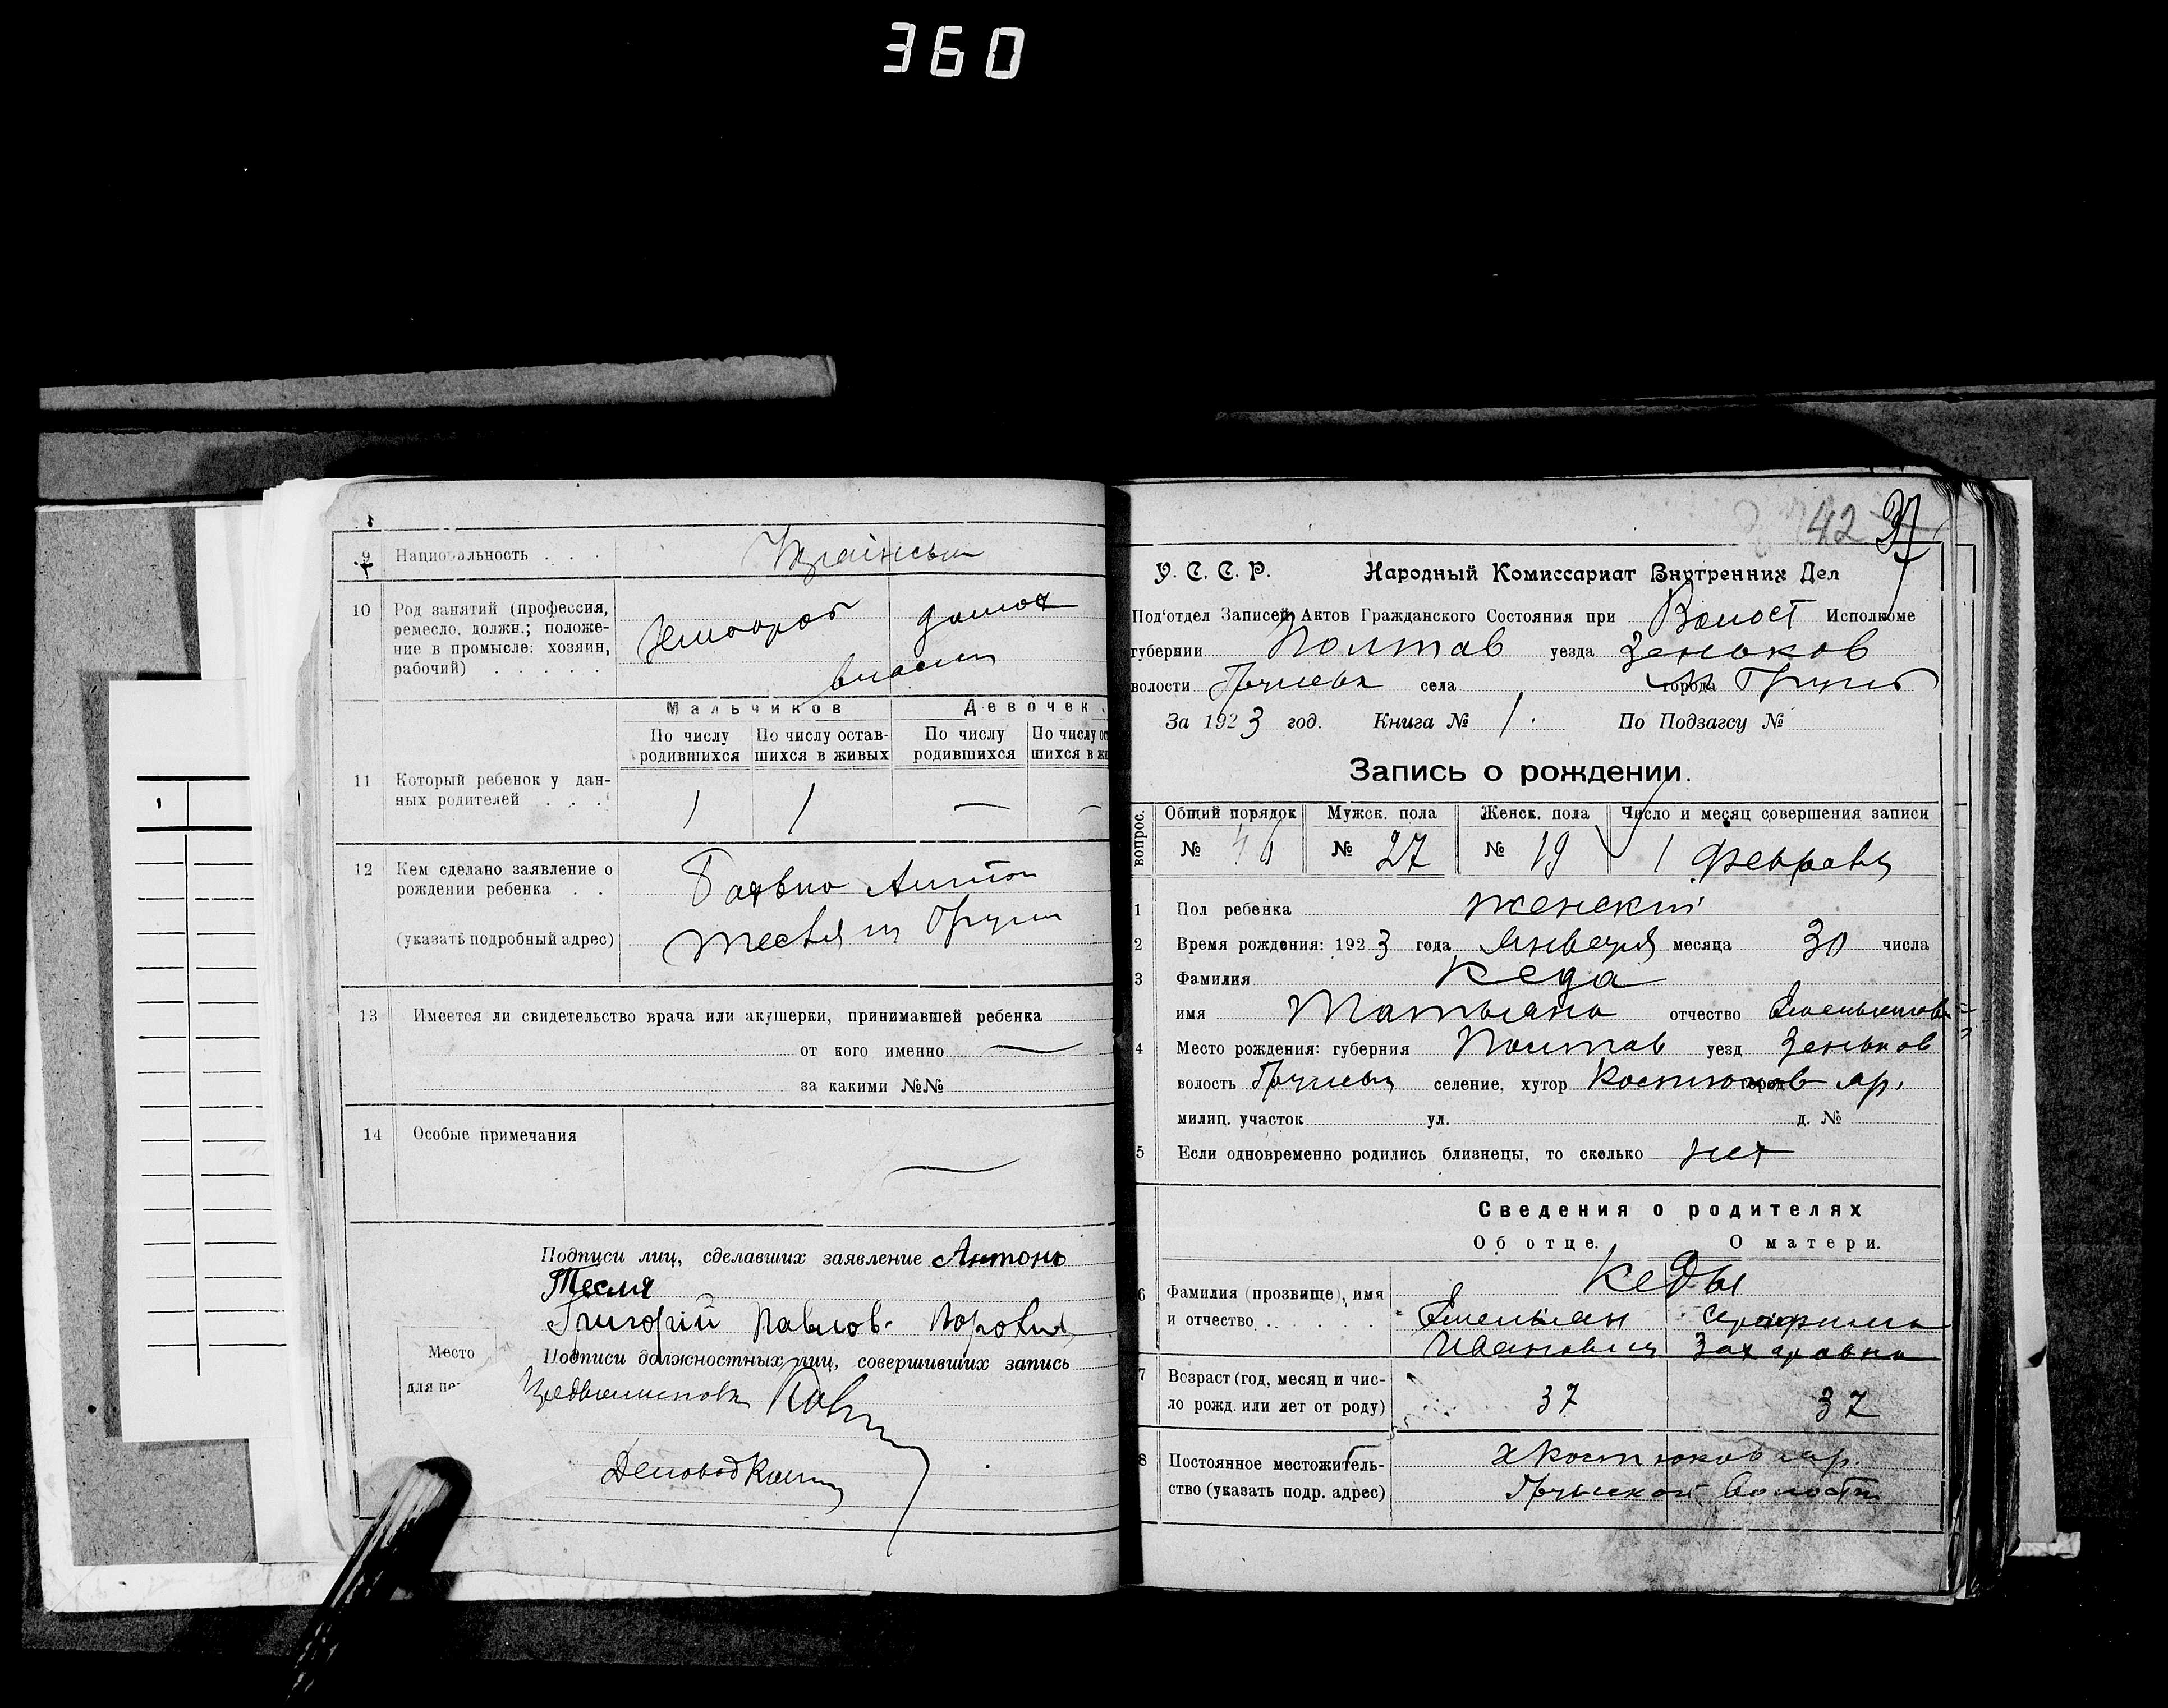 360
9 Национальность . . .
10 Род занятий (профессия,
ремесло, должн.; положе-
ние в промысле: хозяин,
рабочий) . . . . .
Мальчиков Девочек.
По числу родившихся По числу остав-шихся в живых По числу родившихся По числу ос шихся в жи
11 Который ребенок у дан-
ных родителей . . . 1 1 — —
12 Кем сделано заявление о
рождении ребенка . . Антон
(указать подробный адрес) Тесля
13 Имеется ли свидетельство врача или акушерки, принимавшей ребенка
от кого именно —
за какими №№
14 Особые примечания —
Подписи лиц, сделавших заявление Антонъ
Тесля
Григорій Павлов.
Место
Подписи должностных лиц, совершивших запись
для пе
Деловод
42 37
У. С. С. Р. Народный Комиссариат Внутренних Дел
Под'отдел Записей Актов Гражданского Состояния при Волост Исполкоме
губернии Полтав уезда Зеньков
волости села города Грунь
За 1923 год. Книга № 1. По Подзагсу №
Запись о рождении.
вопрос. Общий порядок Мужск. пола Женск. пола Число и месяц совершения записи
№ 46 № 27 № 19 1 Февраля
1 Пол ребенка женский
2 Время рождения: 1923 года Января месяца 30 числа
3 Фамилия Кеда
имя Татьяна отчество
4 Место рождения: губерния Полтав уезд Зеньков
волость селение, хутор Костюков
милиц. участок ул. д. №
5 Если одновременно родились близнецы, то сколько нет
Сведения о родителях
Об отце. О матери.
Кеды
6 Фамилия (прозвище), имя Емельян
и отчество . . . . . Иванович Захаровна
7 Возраст (год, месяц и чис-
ло рожд. или лет от роду) 37 37
8 Постоянное местожитель- х Костюков
ство (указать подр. адрес) волости